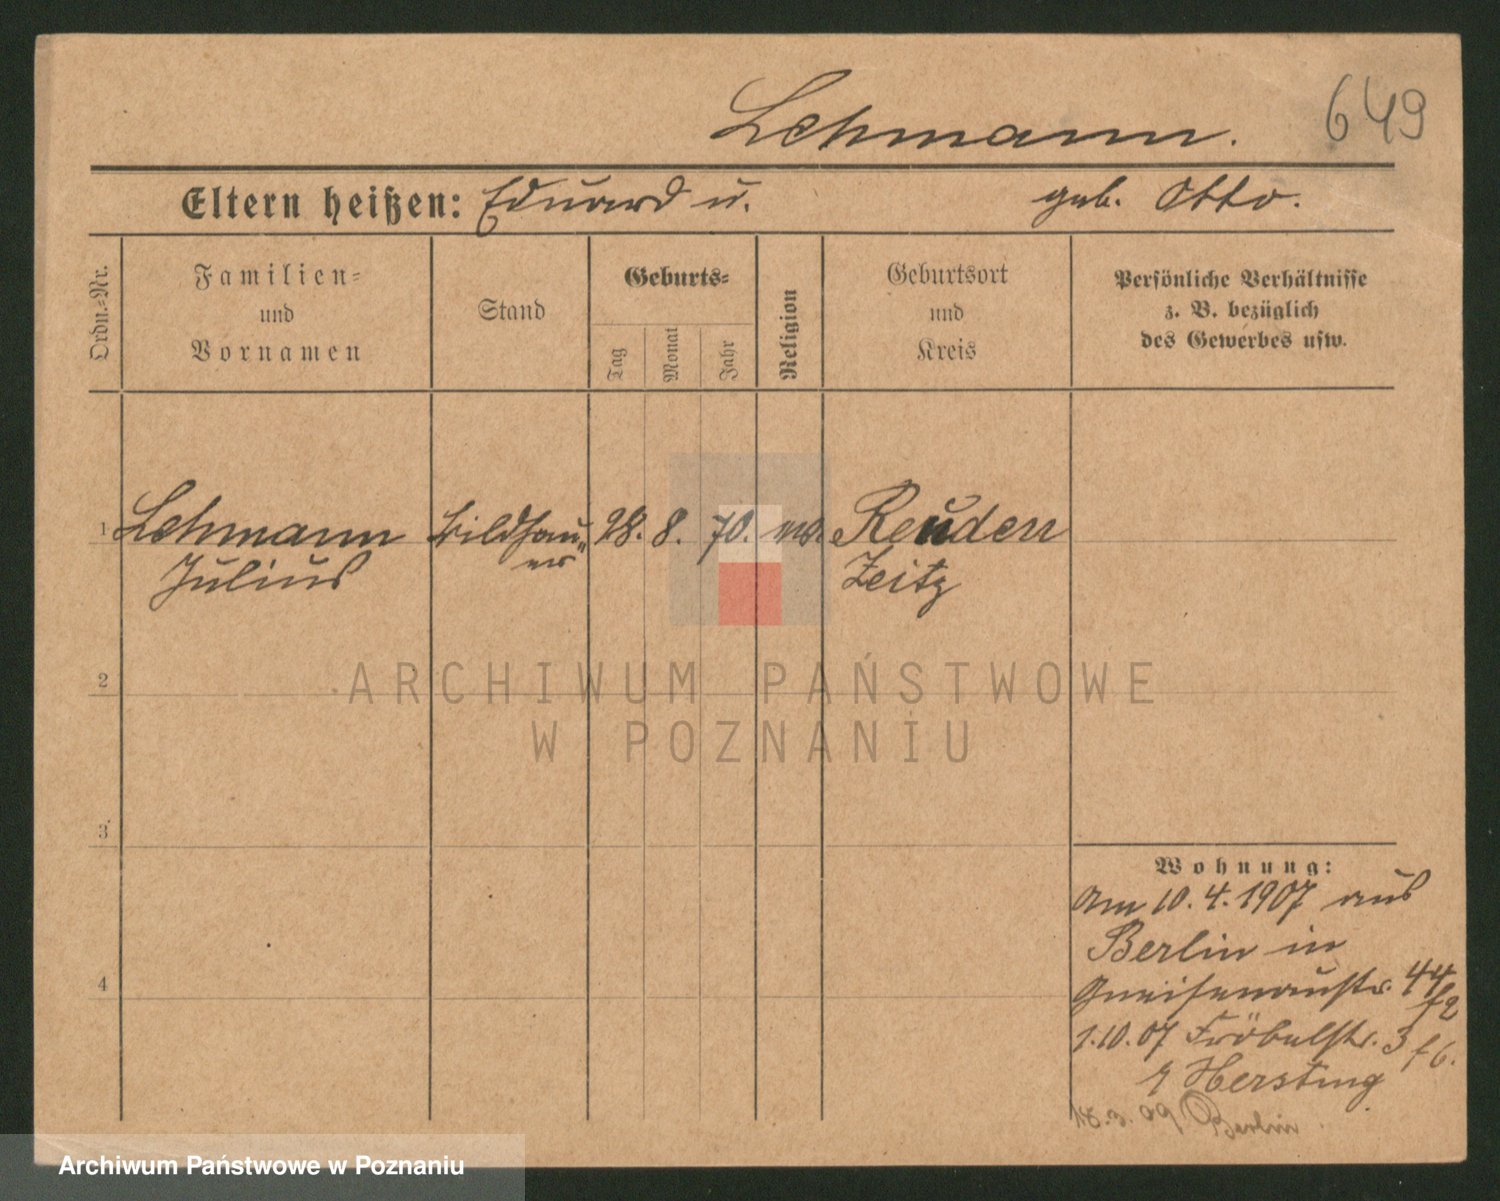 649
Lehmann.
Eltern heißen: Eduard u. geb. Otto.
Ordn.-Nr.
Familien-
und
Vornamen
Stand
Geburts-
Tag
Monat
Jahr
Religion
Geburtsort
und
Kreis
Persönliche Verhältnisse
z. B. bezüglich
des Gewerbes usw.
1 Lehmann Bildhau- 28. 8. 70. Reuden
Julius er Zeitz
2
ARCHIWUM PAŃSTWOWE
W POZNANIU
3
Wohnung:
Am 10. 4. 1907 aus
Berlin in
4
Gneisenaustr. 44
1.10.07 Fröbelstr. 3
Hersting
18. 3. 09 Berlin.
Archiwum Państwowe w Poznaniu